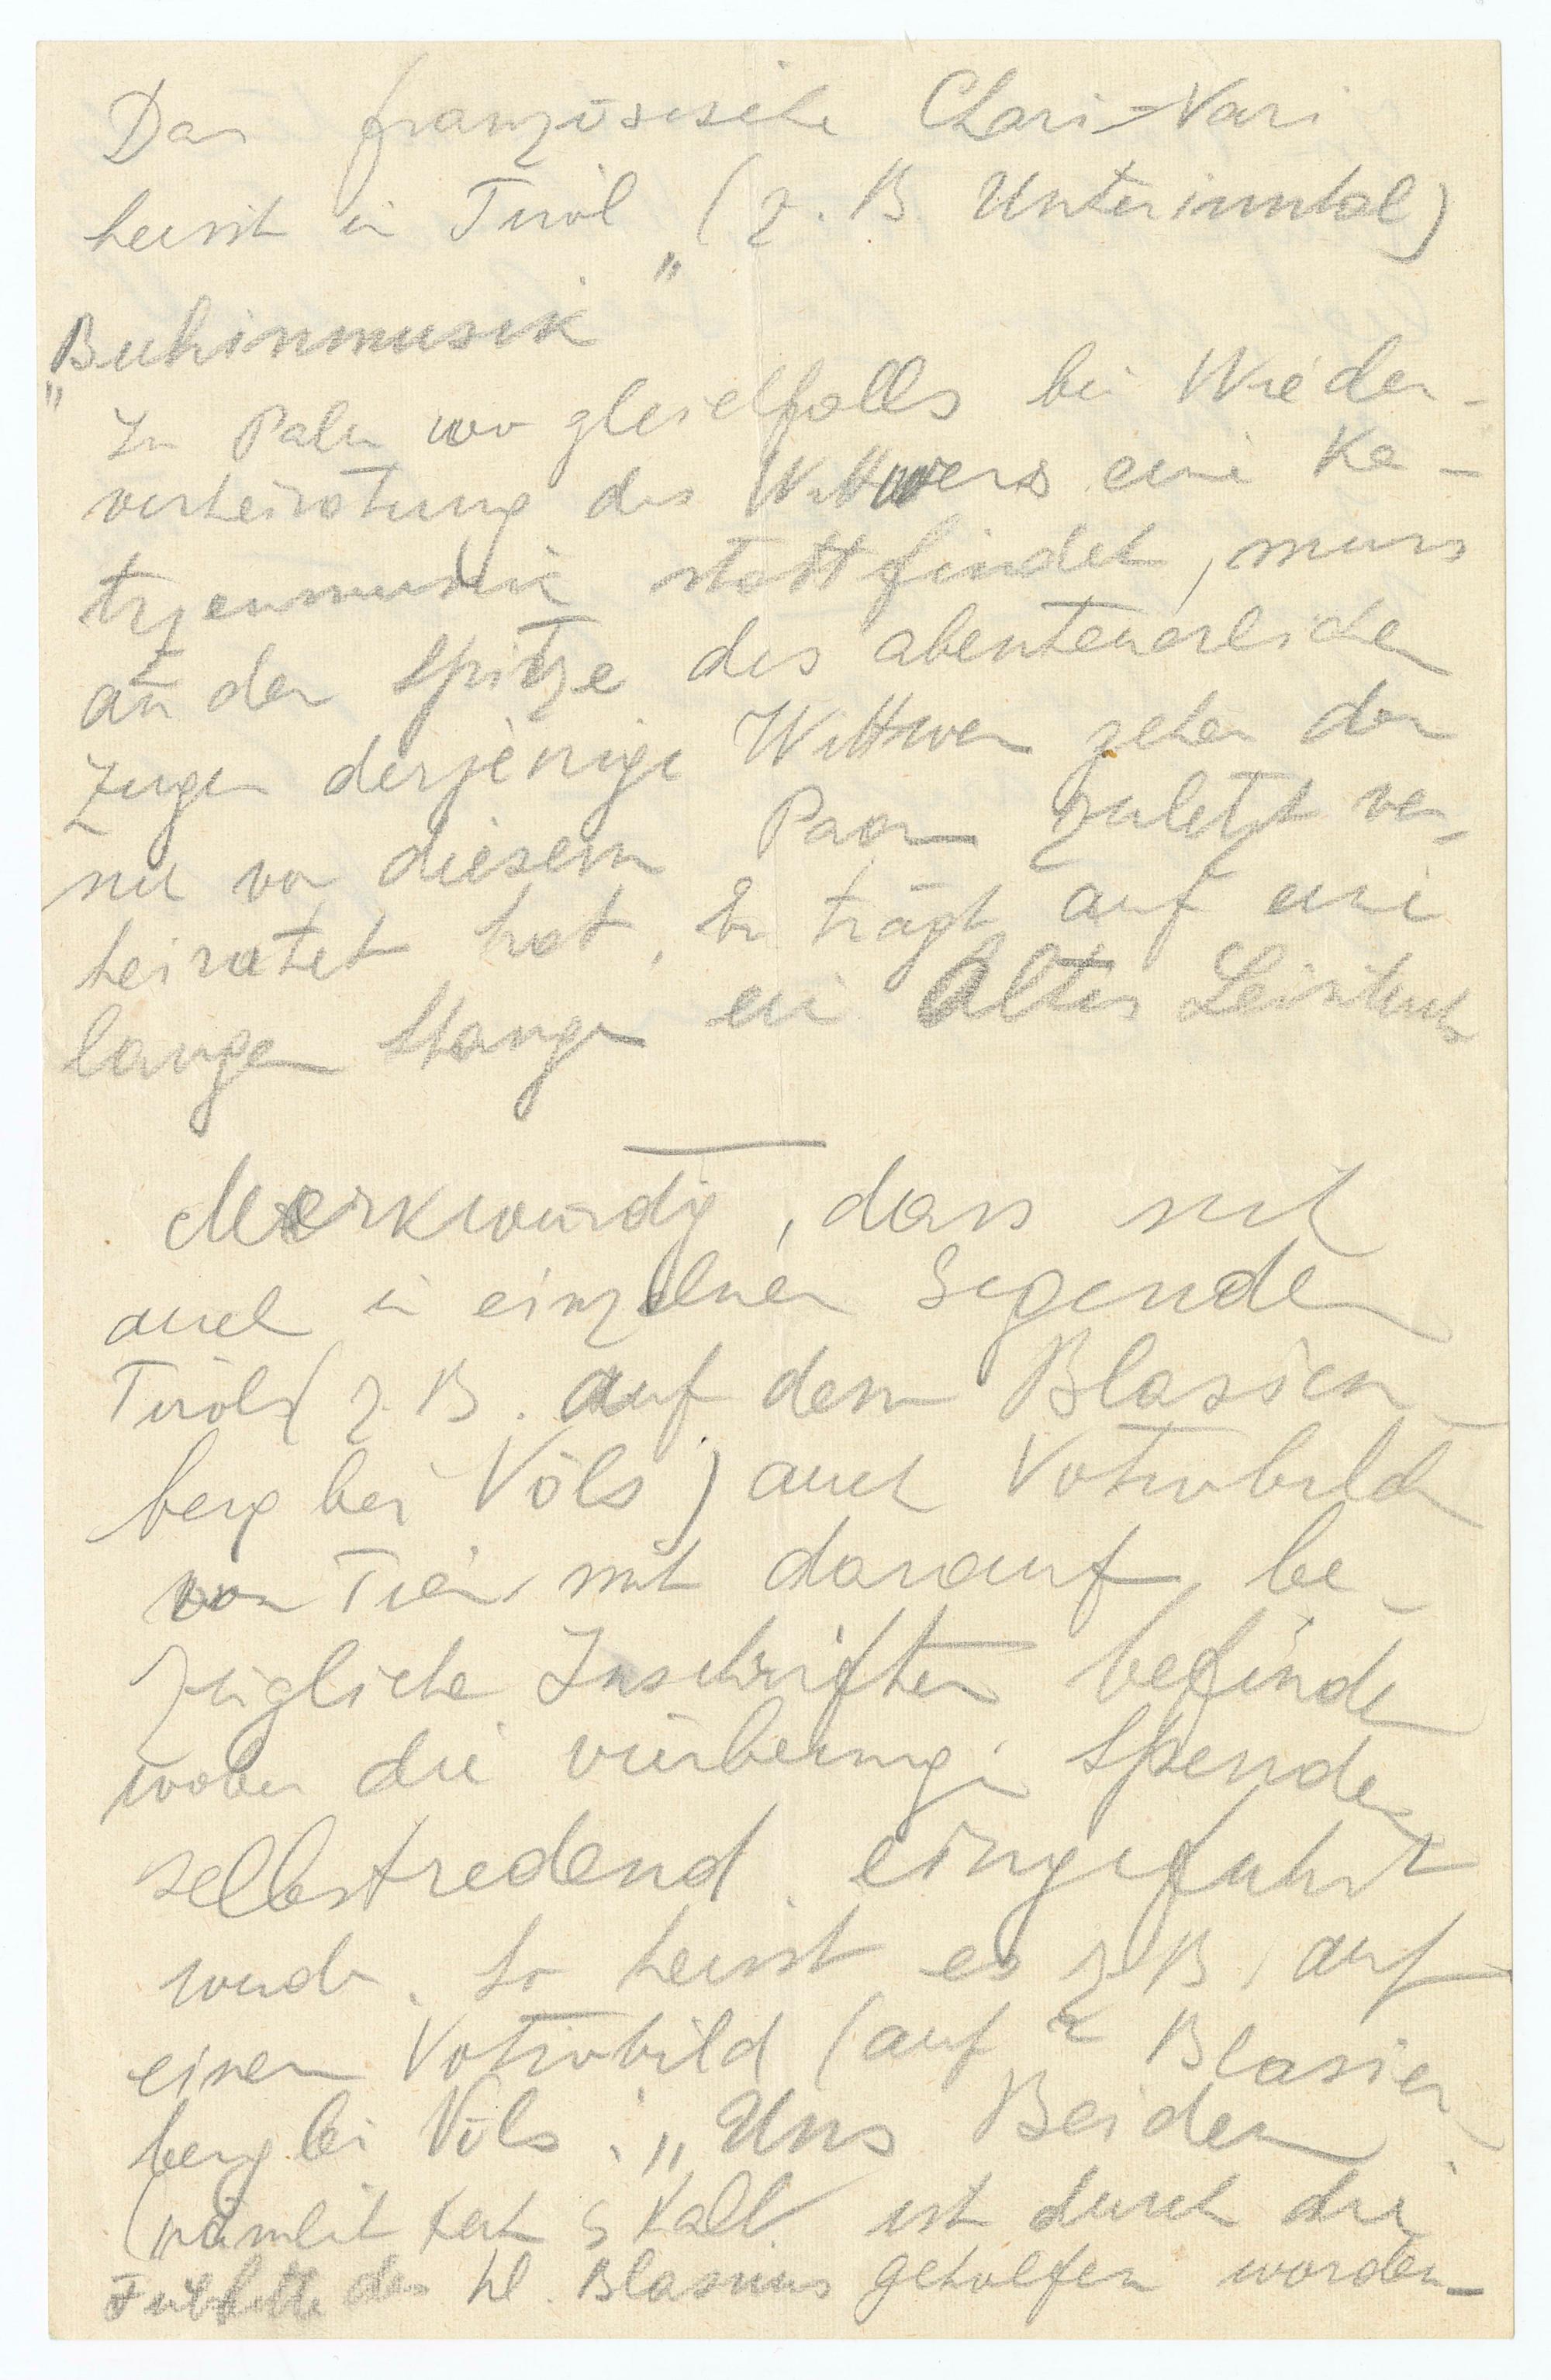 Das französische Chari-Vari
heisst in Tirol (z. B. Unterinntal)
"Buhinmusik"
In wo gleichfalls bei Wieder-
verheiratung des Wittwers eine Ka-
tzenmusik stattfindet, muss
an der Spitze des abenteuerlichen
Zuges derjenige Wittwer gehen der
sich vor diesem Paar zuletzt ver-
heiratet hat. Er trägt auf eine
langen Stange ein altes Leintuch
Merkwürdig, dass sich
auch in einzelnen Gegenden
Tirols (z. B. auf dem Blasien-
berg bei Völs) auch Votivbilder
von Tier mit darauf be-
zügliche Inschriften befinden
wobei die vierbeinigen Spender
selbstredend eingeführt
werden. So heisst es z. B. auf
einem Votivbild (auf Blasien
berg bei Völs: "Uns Beiden
(nämlich Kuh & Kalb ist durch die
Fürbitte des hl. Blasius geholfen worden